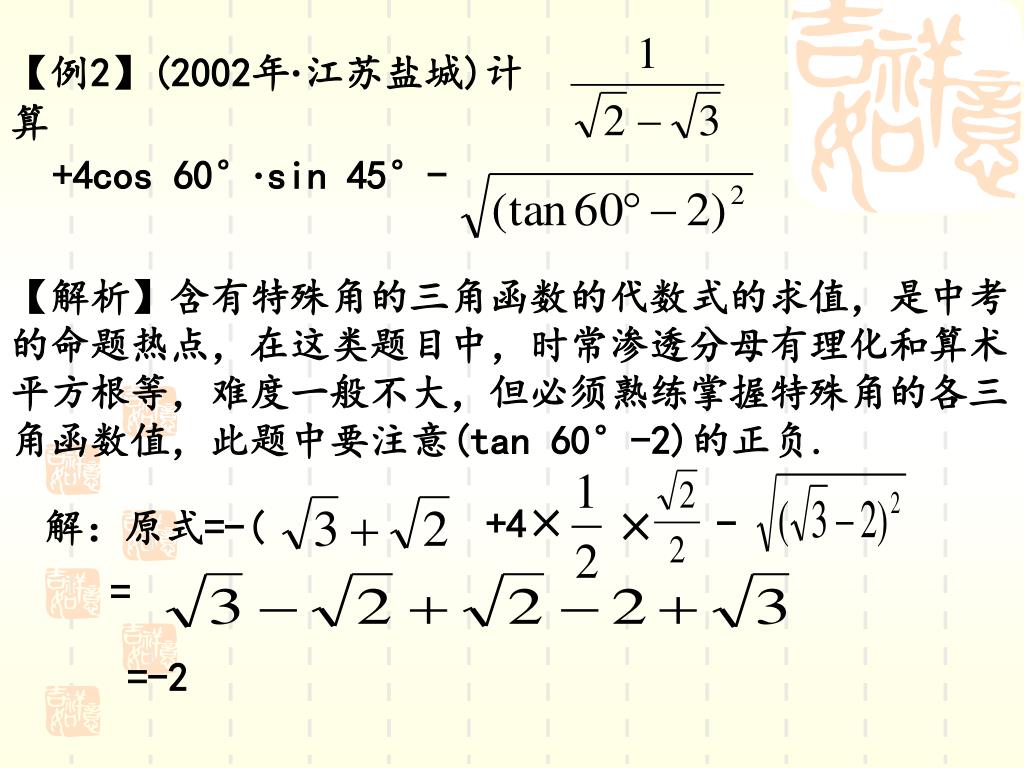 【例2】(2002年·江苏盐城)计 1/(√2-√3)
算
+4cos 60°·sin 45°-√((tan 60°-2)²)
【解析】含有特殊角的三角函数的代数式的求值，是中考
的命题热点，在这类题目中，时常渗透分母有理化和算术
平方根等，难度一般不大，但必须熟练掌握特殊角的各三
角函数值，此题中要注意(tan 60°-2)的正负.
解：原式=-(√3+√2 +4×1/2×√2/2-√((√3-2)²)
=√3-√2+√2-2+√3
=-2
吉祥如意
吉祥如意
吉祥如意
吉祥如意
吉祥如意
吉祥如意
吉祥如意